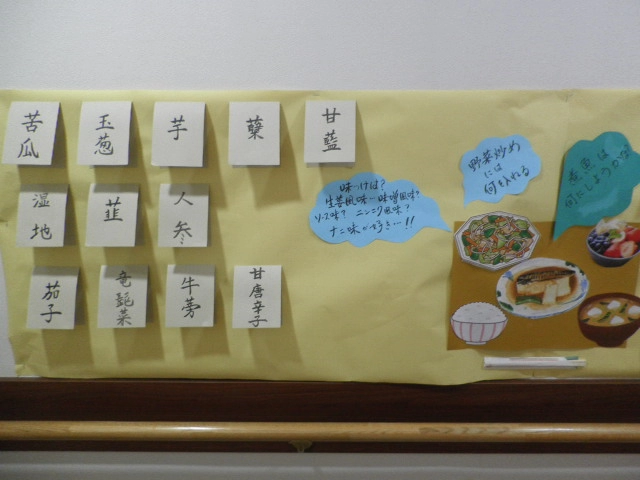 苦瓜
玉葱
芋
蘖
甘藍
湿地
韮
人参
茄子
竜髭菜
牛蒡
甘唐辛子
味つけは?
生姜風味-味噌風味?
ソース味? ニンニク風味?
ナニ味が好き…!!
野菜炒め
には
何を入れる
何にしようかな